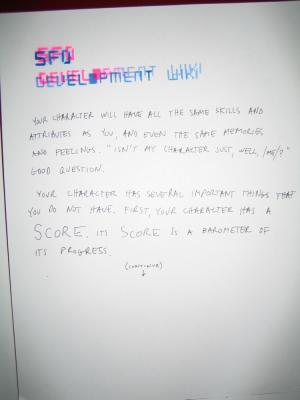 SFO
DEVELOPMENT WIKI
YOUR CHARACTER WILL HAVE ALL THE SAME SKILLS AND
ATTRIBUTES AS YOU, AND EVEN THE SAME MEMORIES
AND FEELINGS. "ISN'T MY CHARACTER JUST, WELL, /ME/?"
GOOD QUESTION.
YOUR CHARACTER HAS SEVERAL IMPORTANT THINGS THAT
YOU DO NOT HAVE. FIRST, YOUR CHARACTER HAS A
SCORE. ITS SCORE IS A BAROMETER OF
ITS PROGRESS.
(CONTINUE)